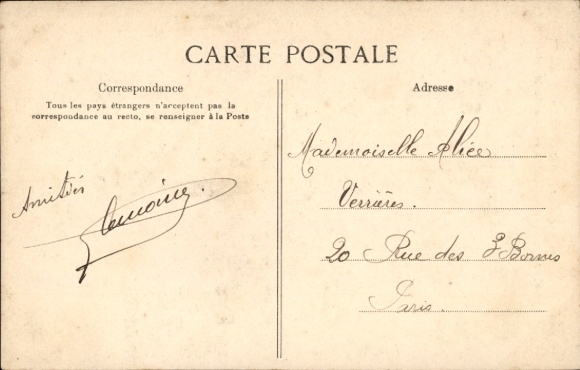 CARTE POSTALE
Correspondance
Tous les pays étrangers n'acceptent pas la
correspondance au recto, se renseigner à la Poste
Amitiés
Lemoine.
Adresse
Mademoiselle Alice
Verrières.
20 Rue des 3 Bornes
Paris.